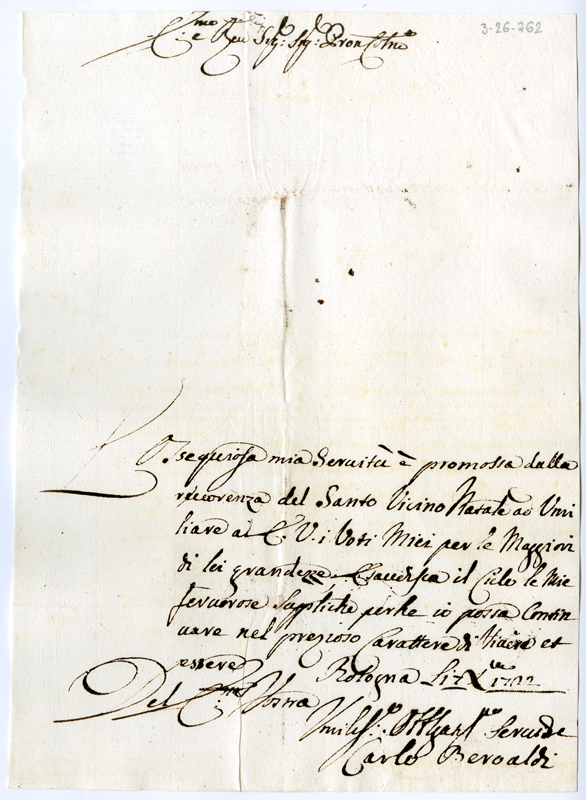 3-26-762
E.mo e Reu Sig.r Sig.r Pron Col.mo
L'Ossequiosa mia Seruitù è promossa dalla
ricorenza del Santo Vicino Natale ad Vmi
liare al E. V. i Voti Miei per le Maggiori
di lei grandeze Esaudisca il Cielo le Mie
feruorose Suppliche perche io possa Contin
uare nel prezioso Carattere di Viuere et
essere
Bologna Li 17 X.bre 1722
Del E.mza Vostra
Vmiliss.o Seruidre
Carlo Beroaldi